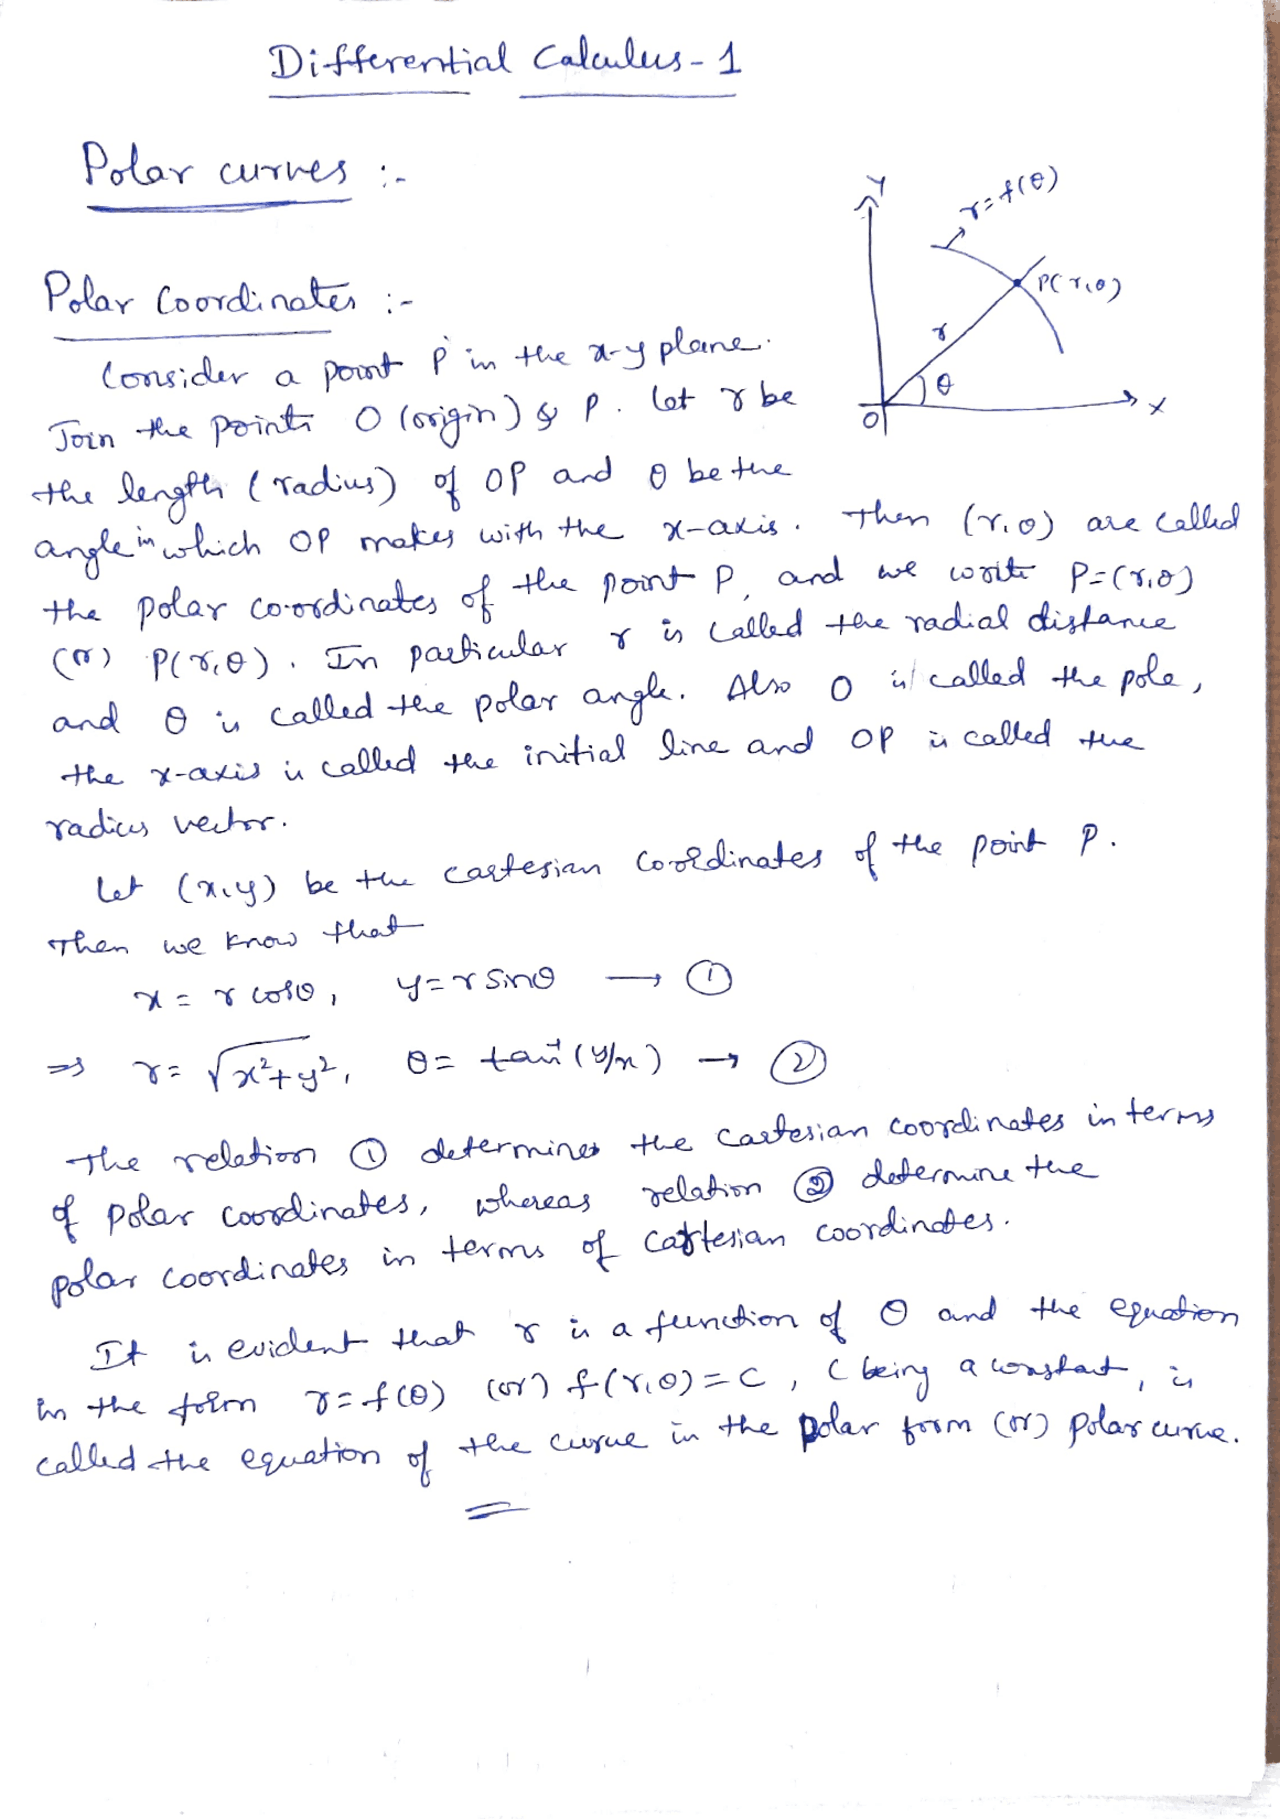 Differential Calculus - 1
Polar curves :-
Y
r = f(θ)
P(r,θ)
r
θ
O
X
Polar Coordinates :-
Consider a point P in the x-y plane.
Join the points O (origin) & P. Let r be
the length (radius) of OP and θ be the
angle in which OP makes with the x-axis. Then (r,θ) are called
the polar co-ordinates of the point P, and we write P=(r,θ)
(or) P(r,θ). In particular r is called the radial distance
and θ is called the polar angle. Also O is called the pole,
the x-axis is called the initial line and OP is called the
radius vector.
Let (x,y) be the cartesian coordinates of the point P.
Then we know that
x = r cosθ, y = r sinθ → ①
⇒ r = √x²+y², θ = tan⁻¹(y/x) → ②
The relation ① determines the cartesian coordinates in terms
of polar coordinates, whereas relation ② determine the
polar coordinates in terms of cartesian coordinates.
It is evident that r is a function of θ and the equation
in the form r = f(θ) (or) f(r,θ) = c, c being a constant, is
called the equation of the curve in the polar form (or) polar curve.